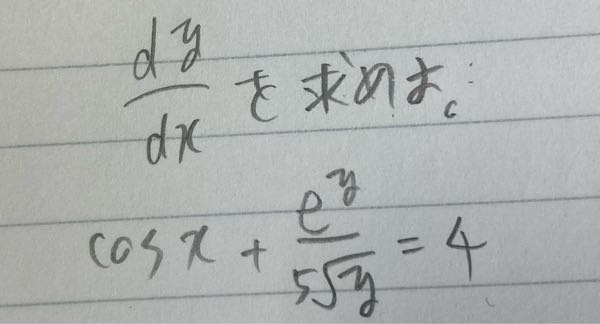 dy/dx を求めよ。
cos x + e^y/(5√y) = 4